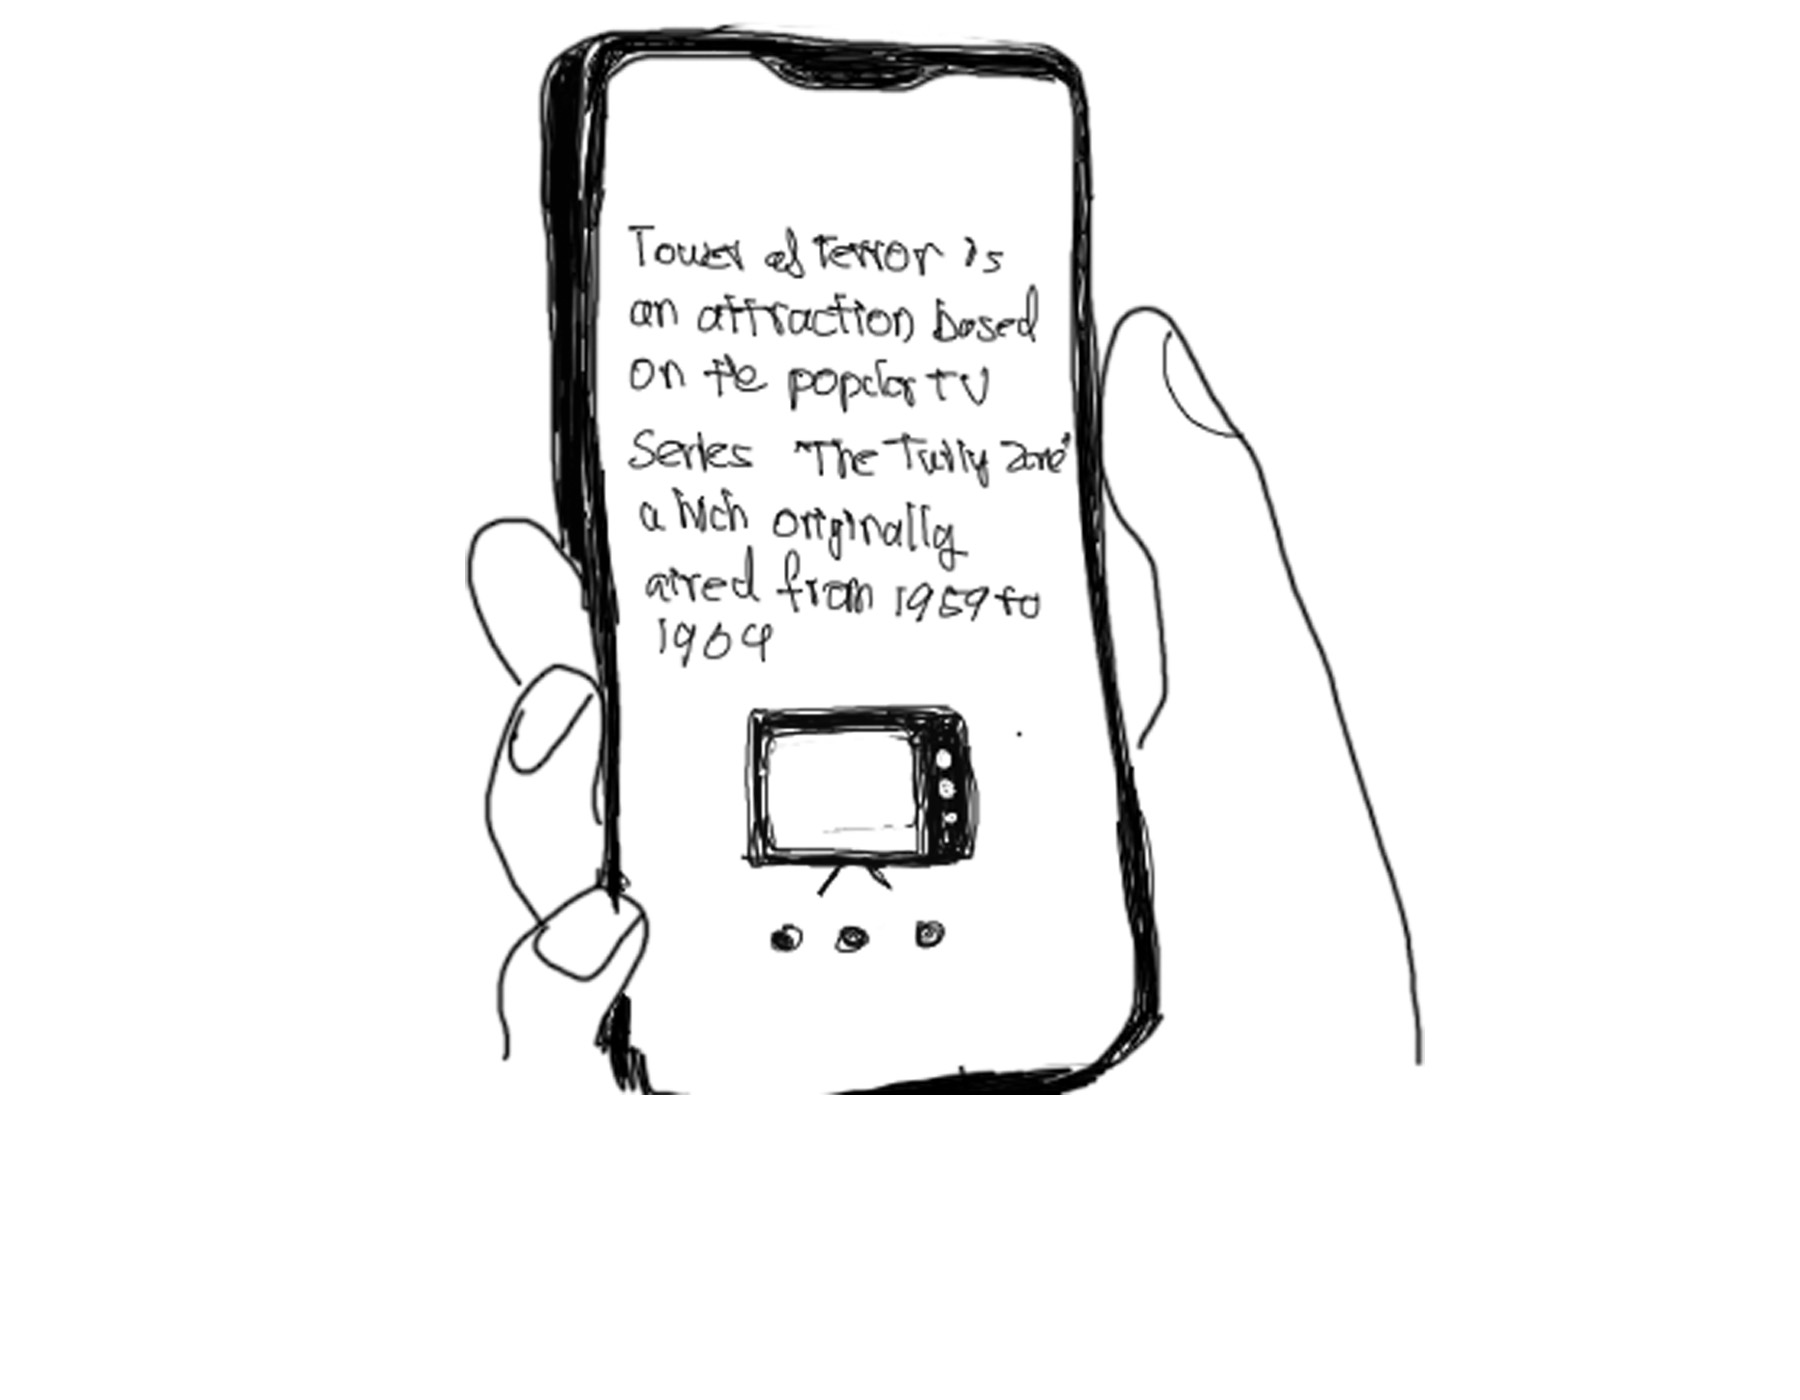 Tower of terror is
an attraction based
on the popular TV
Series "The Zone"
which originally
aired from 1959 to
1964